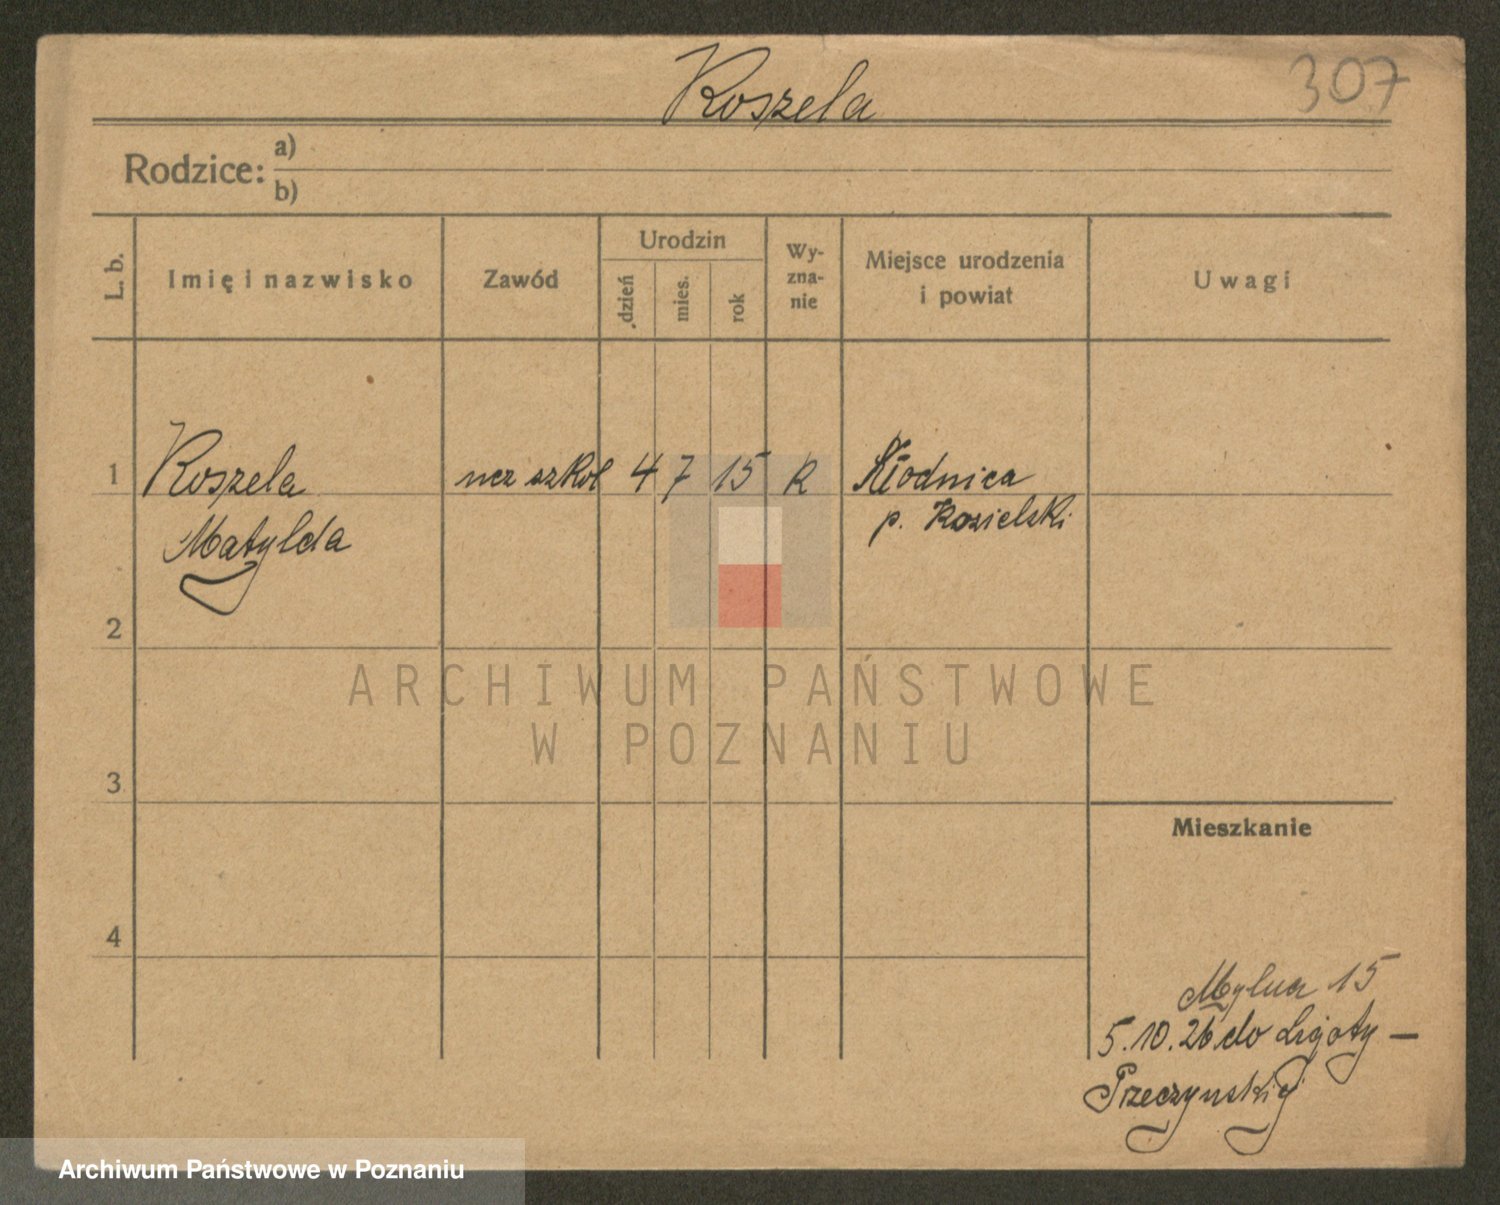 Koszela
307
Rodzice: a)
b)
L. b.
Imię i nazwisko
Zawód
Urodzin
dzień
mies.
rok
Wy-
zna-
nie
Miejsce urodzenia
i powiat
Uwagi
1 Koszela ucz szkol 4 7 15 k Kłodnica
Matylda p. Kozielski
2
ARCHIWUM PAŃSTWOWE
W POZNANIU
3
Mieszkanie
4
Mylna 15
5.10.26 do Ligoty —
Przeczynskiej
Archiwum Państwowe w Poznaniu